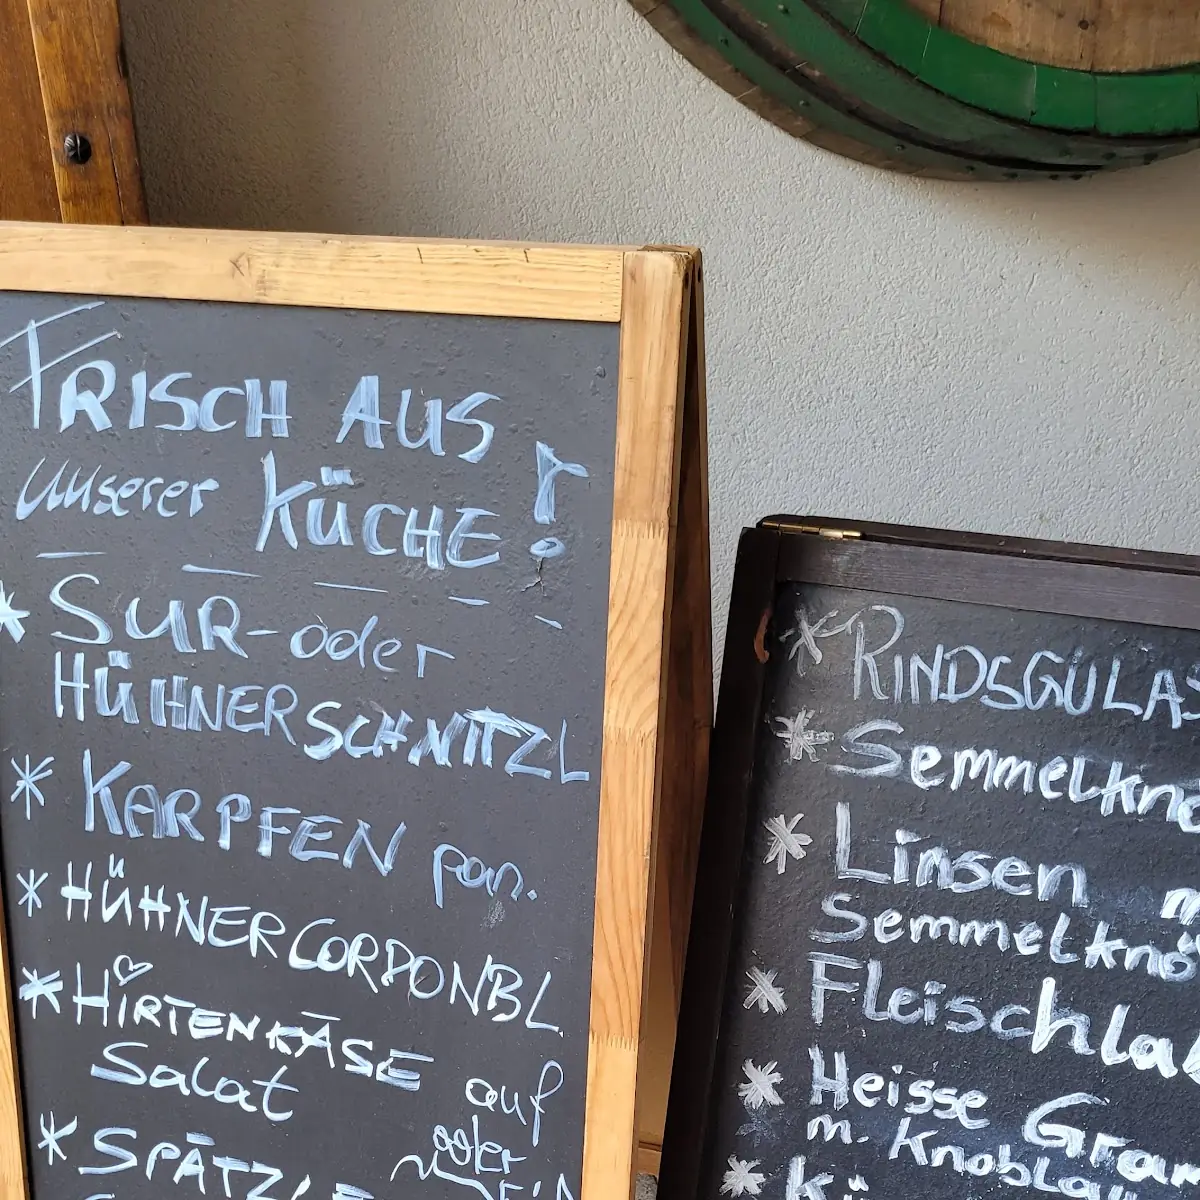 FRISCH AUS
unserer KÜCHE!
* SUR- oder
HÜHNERSCHNITZL
* KARPFEN pan.
* HÜHNERCORDONBL.
* HIRTENKÄSE auf
Salat
oder
* SPÄTZLE
* RINDSGULAS
* Semmelknö
* Linsen m
Semmelknö
* Fleischlab
* Heisse Gram
m. Knoblau
* Kü